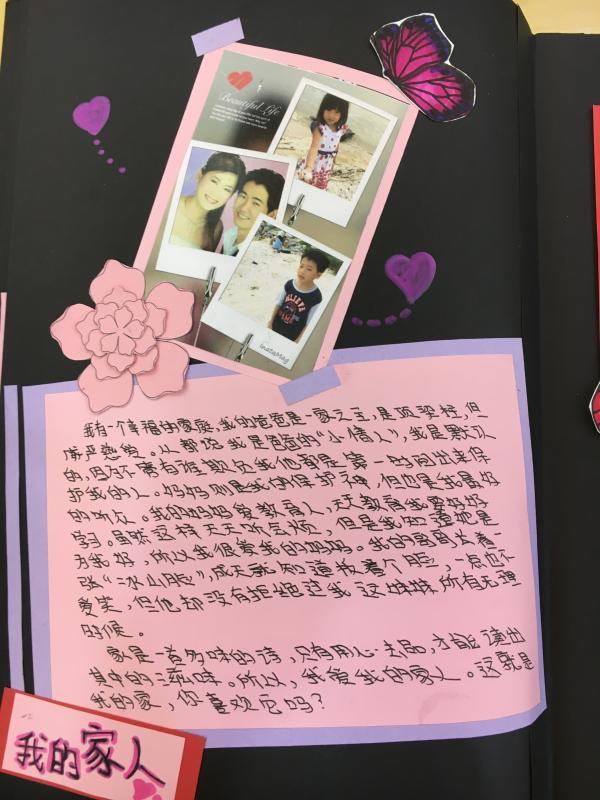 Beautiful Life
InstaMag
我有一个幸福的家庭,我的爸爸是一家之主,是顶梁柱,但
人都说我是爸爸的“小情人”,我是默认
的,因为不管有谁欺负我他都是第一时间出来保
护我的人。妈妈则是我的保护神,但也是我最好
的听众。我的妈妈爱教育人,天天教育我要好好
学习。虽然这样天天听会烦,但是我知道她是
为我好,所以我很爱我的妈妈。我的哥哥长着一
张“冰山脸”,成天就知道板着个脸,一点也不
爱笑,但他却没有拒绝过我这妹妹所有无理
时候。
家是一首多味的诗,只有用心去品,才能读出
其中的滋味。所以,我爱我的家人。这就是
我的家,你喜欢它吗?
我的家人